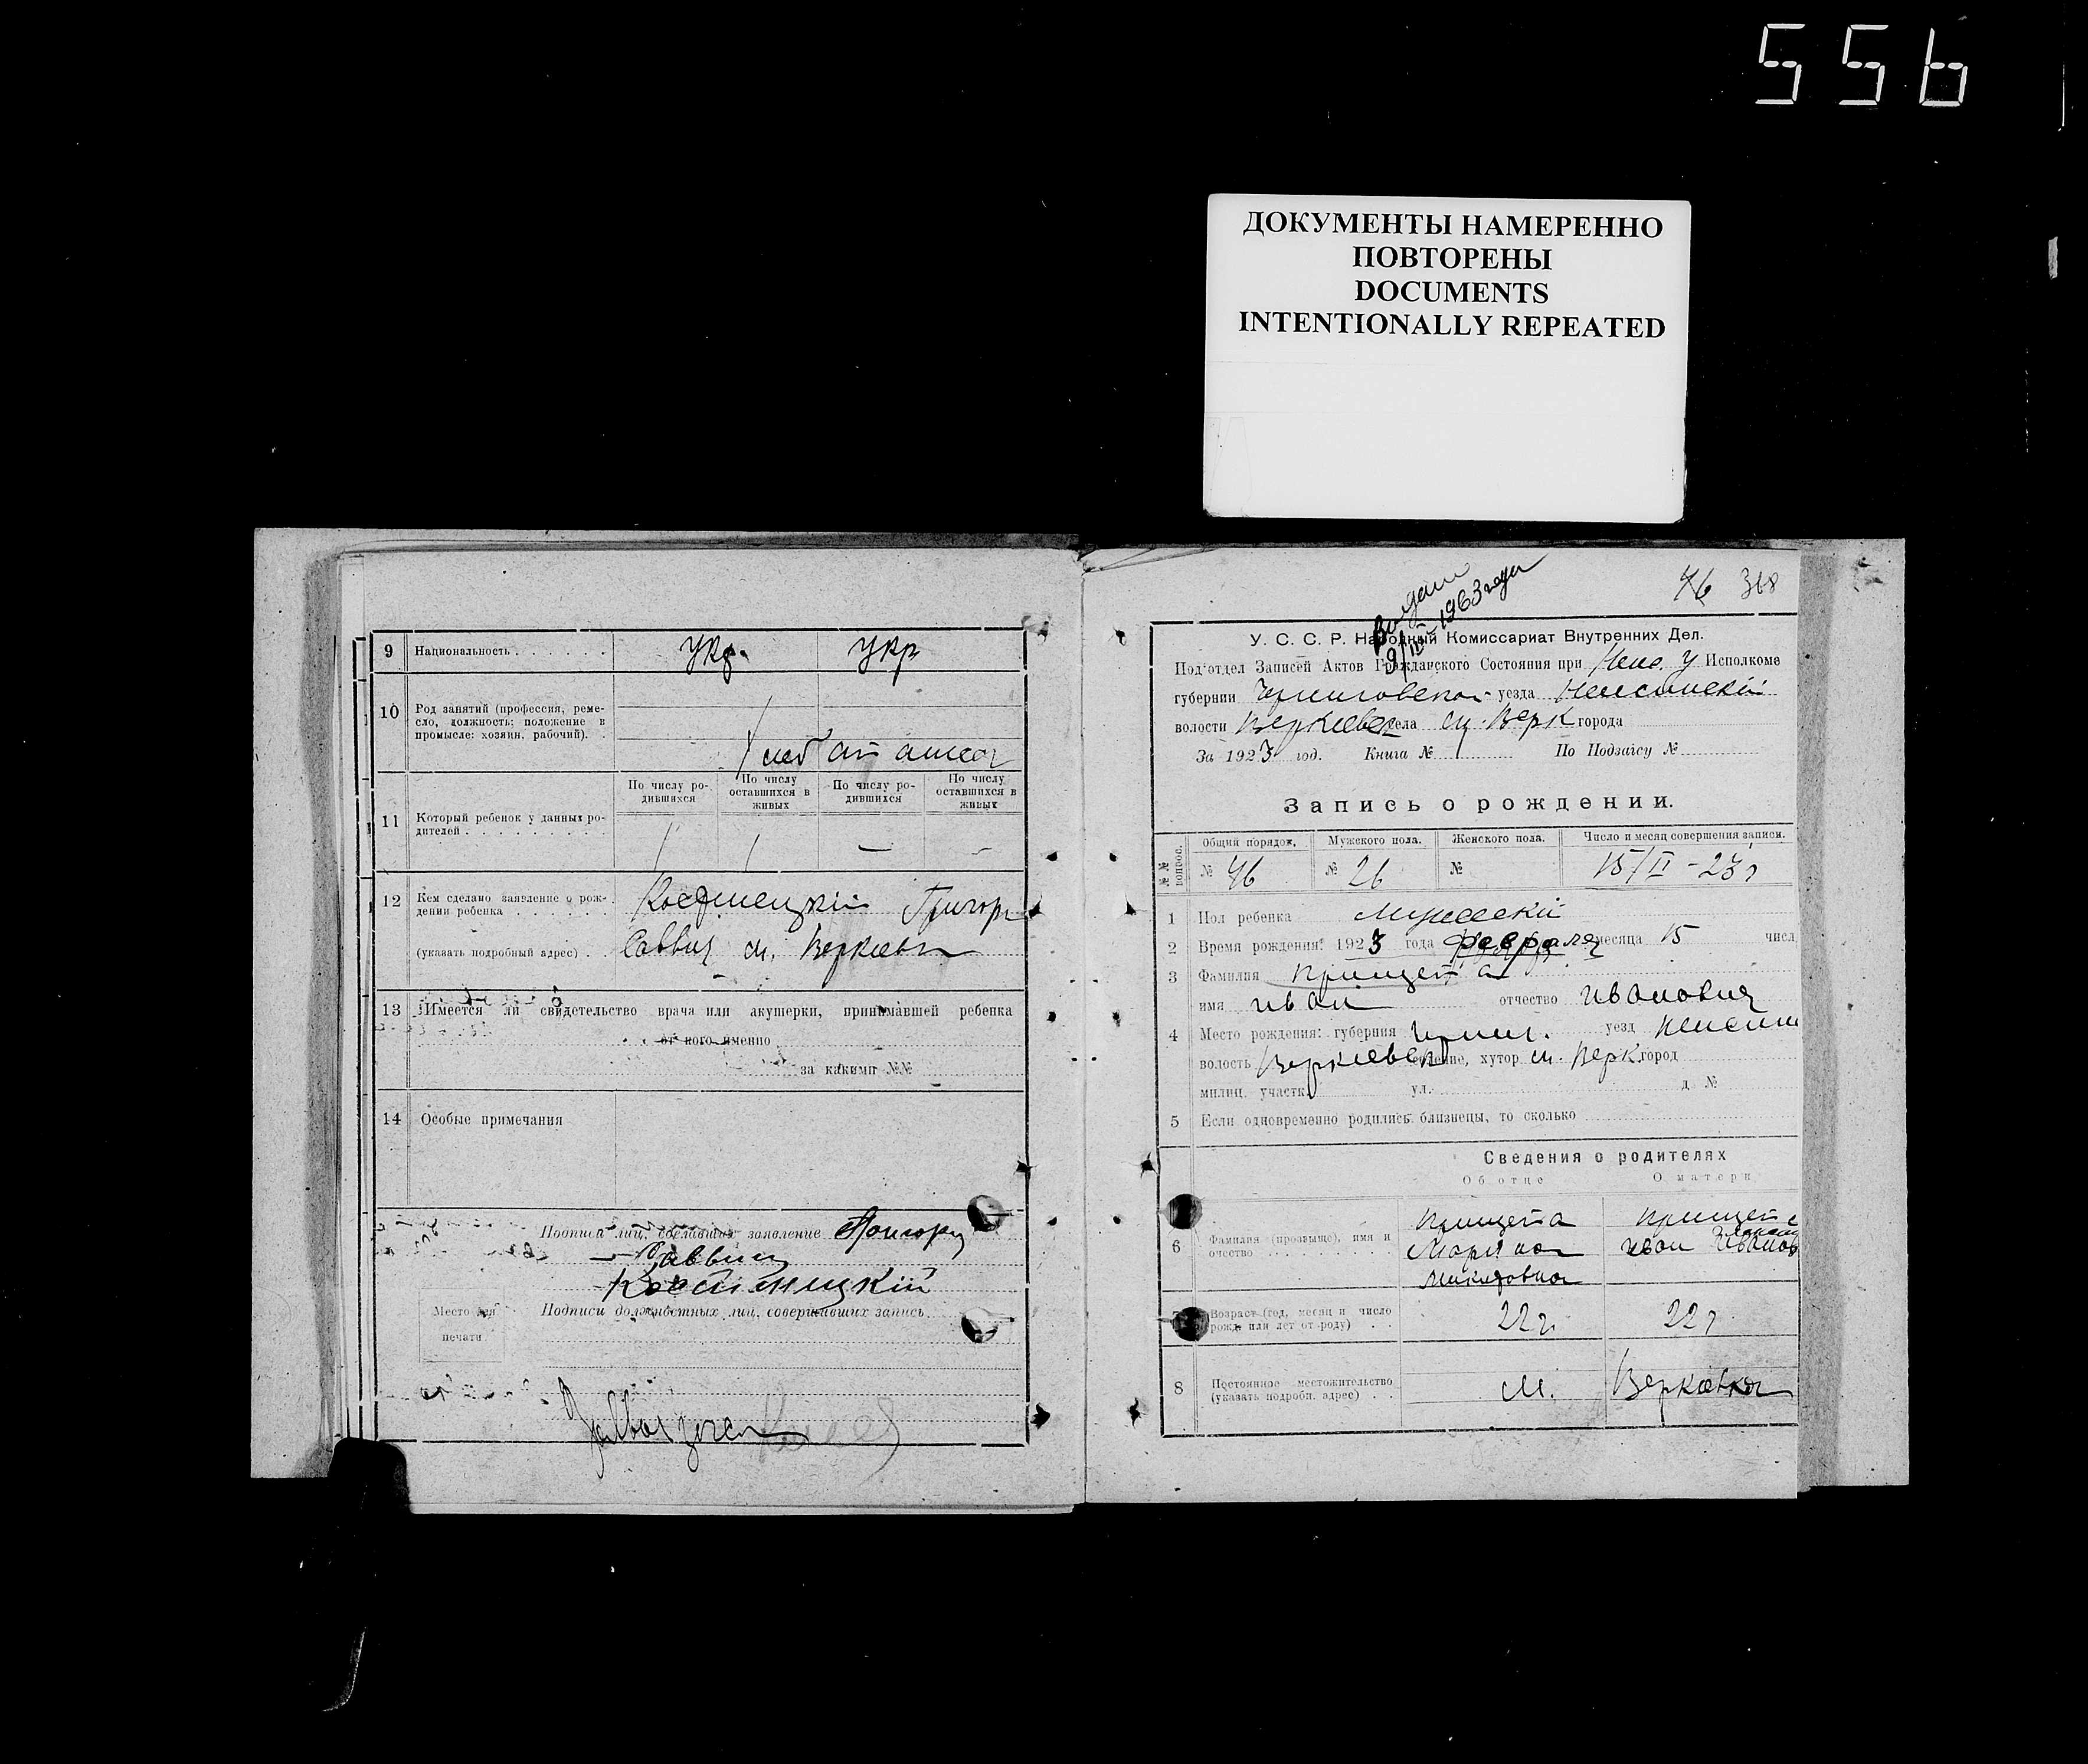 556
ДОКУМЕНТЫ НАМЕРЕННО
ПОВТОРЕНЫ
DOCUMENTS
INTENTIONALLY REPEATED
9 Национальность . . . . . . Укр. Укр
10 Род занятий (профессия, реме-
сло, должность; положение в
промысле: хозяин, рабочий). .
По числу ро-
дившихся
По числу
оставшихся в
живых
По числу ро-
дившихся
По числу
оставшихся в
живых
11 Который ребенок у данных ро-
дителей . . . . . . . . . 1 1 — —
12 Кем сделано заявление о рож-
дении ребенка . . . . . . Григор
(указать подробный адрес) . . Саввич м. Веркиевк
13 Имеется ли свидетельство врача или акушерки, принимавшей ребенка
от кого именно
за какими №№
14 Особые примечания
Подписи лиц, сделавших заявление Григорий
Саввич
Место для
печати
Подписи должностных лиц, совершавших запись
46 368
Выдано
9/IV-1963 года
У. С. С. Р. Народный Комиссариат Внутренних Дел.
Под'отдел Записей Актов Гражданского Состояния при Неж. У Исполкоме
губернии Черниговской уезда Нежинский
волости Веркиевск села м. Верк города
За 1923 год. Книга № По Подзагсу №
Запись о рождении.
№№ вопрос.
Общий порядок. Мужского пола. Женского пола. Число и месяц совершения записи.
№ 46 № 26 № 15/II - 23 г
1 Пол ребенка Мужеский
2 Время рождения: 1923 года февраля месяца 15 числ
3 Фамилия Прищепа
имя Иван отчество Иванович
4 Место рождения: губерния Черниг. уезд Нежин
волость Веркиевск селение, хутор м. Верк. город
милиц. участк. ул. д. №
5 Если одновременно родились близнецы, то сколько
Сведения о родителях
Об отце О матери
6 Фамилия (прозвище), имя и
отчество . . . Прищепа Марина Прищепа Иван Иванов
7 Возраст (год, месяц и число
рожд. или лет от роду) . . 22 г. 22 г
8 Постоянное местожительство
(указать подробн. адрес) . . м. Веркиевка